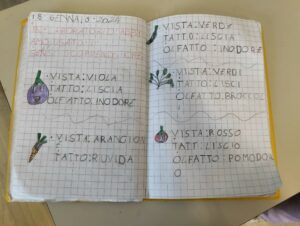 GENNAIO 2024
LABORATORIO
VISTA: VIOLA
TATTO: LISCIA
OLFATTO: INODORE
VISTA: ARANCION
E
TATTO: RUVIDA
VISTA: VERDE
TATTO: LISCIA
OLFATTO: INODORE
VISTA: VERDI
TATTO: LISCI
OLFATTO: BROCCOL
I
VISTA: ROSSO
TATT: LISCIO
OLFATTO: POMODOR
O